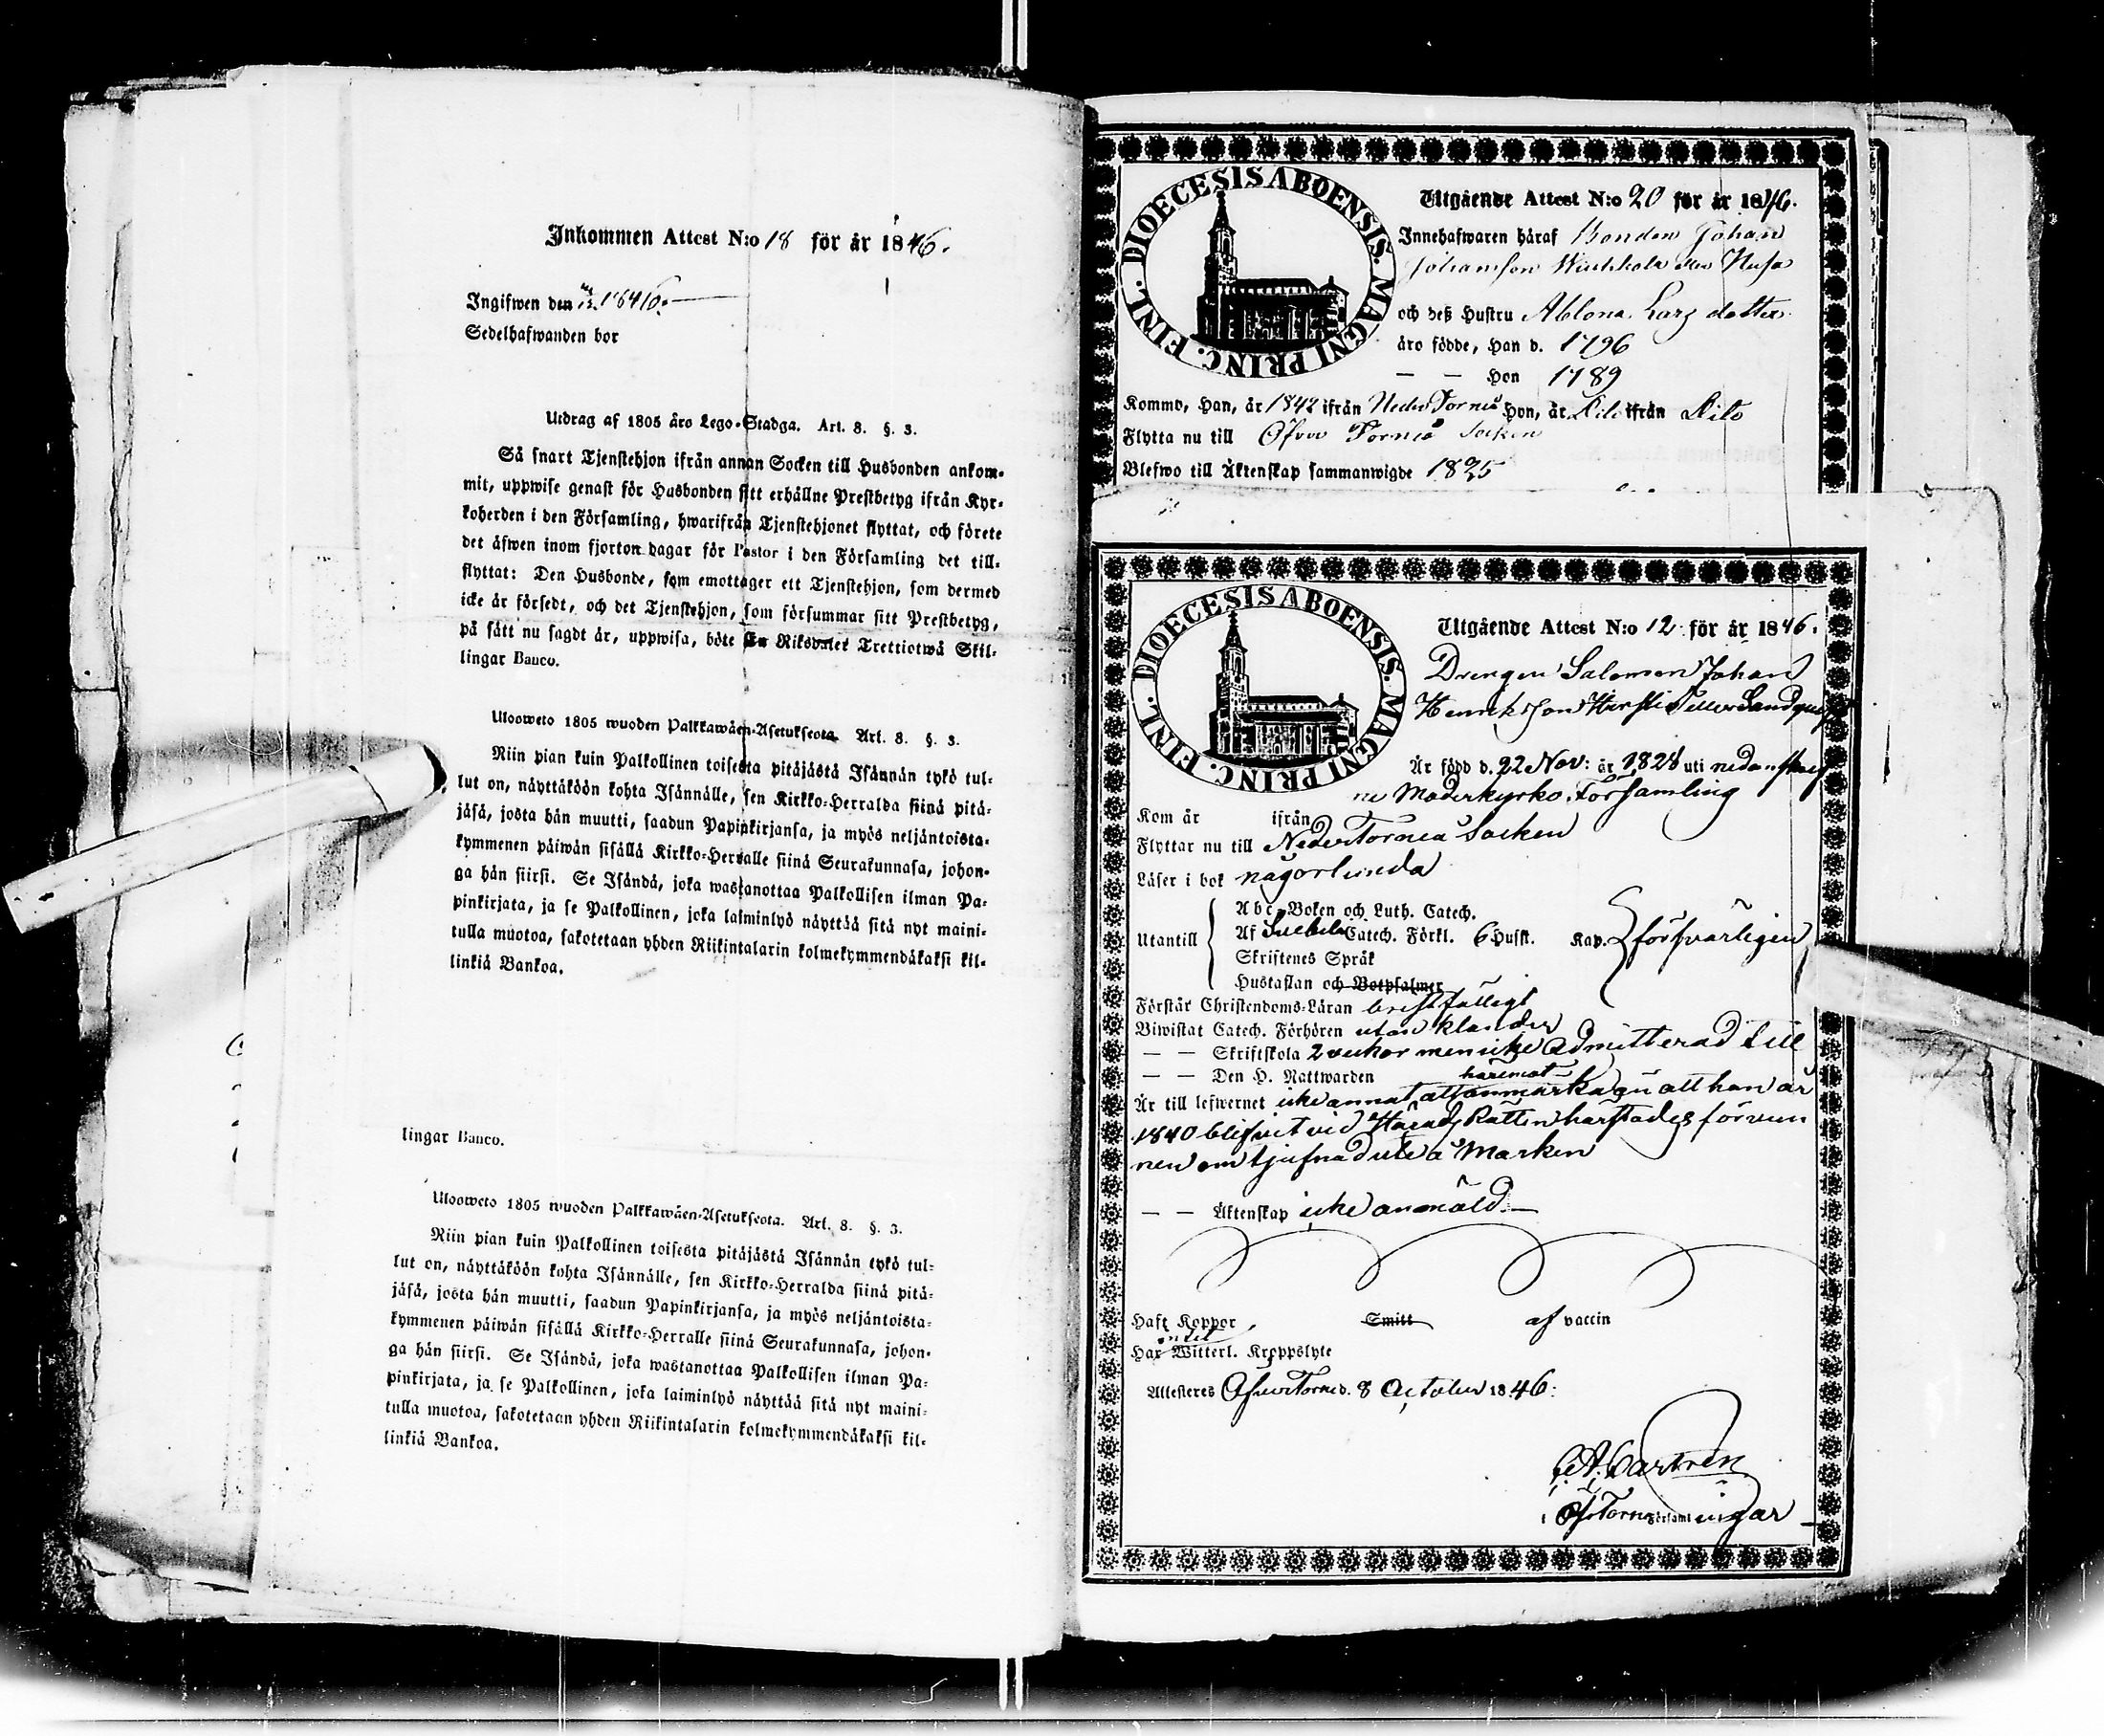 Inkommen Attest N:o 18 för år 1846.
Ingifwen den 1846.
Sedelhafwanden bor
Utdrag af 1805 års Lego-Stadga. Art. 8. §. 3.
Så snart Tjenstehjon ifrån annan Socken till Husbonden ankom-
mit, uppwise genast för Husbonden sitt erhållne Prestbetyg ifrån Kyr-
koherden i den Församling, hwarifrån Tjenstehjonet flyttat, och förete
det äfwen inom fjorton dagar för Pastor i den Församling det till-
flyttat: Den Husbonde, som emottager ett Tjenstehjon, som dermed
icke är försedt, och det Tjenstehjon, som försummar sitt Prestbetyg,
på sätt nu sagdt är, uppwisa, böte En Riksdaler Trettiotwå Skil-
lingar Banco.
Ulosweto 1805 wuoden Palkkawäen-Asetuksesta. Art. 8. §. 3.
Niin pian kuin Palkollinen toisesta pitäjästä Isännän tykö tul-
lut on, näyttäköön kohta Isännälle, sen Kirkko-Herralda siinä pitä-
jäsä, josta hän muutti, saadun Papinkirjansa, ja myös neljäntoista-
kymmenen päiwän sisällä Kirkko-Herralle siinä Seurakunnasa, johon-
ga hän siirsi. Se Isändä, joka wastanottaa Palkollisen ilman Pa-
pinkirjata, ja se Palkollinen, joka laiminlyö näyttää sitä nyt maini-
tulla muotoa, sakotetaan yhden Riikintalarin kolmekymmendäkaksi kil-
linkiä Bankoa.
lingar Banco.
Ulosweto 1805 wuoden Palkkawäen-Asetuksesta. Art. 8. §. 3.
Niin pian kuin Palkollinen toisesta pitäjästä Isännän tykö tul-
lut on, näyttäköön kohta Isännälle, sen Kirkko-Herralda siinä pitä-
jäsä, josta hän muutti, saadun Papinkirjansa, ja myös neljäntoista-
kymmenen päiwän sisällä Kirkko-Herralle siinä Seurakunnasa, johon-
ga hän siirsi. Se Isändä, joka wastanottaa Palkollisen ilman Pa-
pinkirjata, ja se Palkollinen, joka laiminlyö näyttää sitä nyt maini-
tulla muotoa, sakotetaan yhden Riikintalarin kolmekymmendäkaksi kil-
linkiä Bankoa.
DIOECESIS ABOENSIS. MAGNI PRINC. FINL.
Utgående Attest N:o 20 för år 1846.
Innehafwaren häraf Bonden Johan
Johansson eller
och deß Hustru Ablona Lars dotter
äro födde, Han d. 1796
— — Hon 1789
Kommo, Han, år 1842 ifrån Neder Torneå Hon, år Dito ifrån Dito
Flytta nu till Öfver Torneå Socken
Blefwo till Äktenskap sammanwigde 1825
DIOECESIS ABOENSIS. MAGNI PRINC. FINL.
Utgående Attest N:o 12 för år 1846.
Drengen Salomon Johan
Henriksson eller
Är född d. 22 Nov: år 1828 uti nedanskref
ne Moderkyrko Församling
Kom år ifrån
Flyttar nu till Neder Torneå Socken
Läser i bok någorlunda
Utantill
Abc-Boken och Luth. Catech.
Af Svebilii Catech. Förkl. 6 Hufst. Kap. försvarligen
Skriftenes Språk
Hustaflan och Botpsalmer
Förstår Christendoms-Läran bristfälligt
Biwistat Catech. Förhören utan klander
— — Skriftskola 2 veckor men icke admitterad till
— — Den H. Nattwarden
häremot
Är till lefwernet icke annat att anmärka än att han är
1840 blifvit vid Härads Rätten härstädes förvun
nen om tjufnad ute å Marken
— — Äktenskap icke anmäld.—
Haft Koppor Smitt af vaccin
Har intet Witterl. Kroppslyte
Attesteres Öfver Torneå d. 8 October 1846:
C. A. Castrén
i Öfr Torneå Församlingar